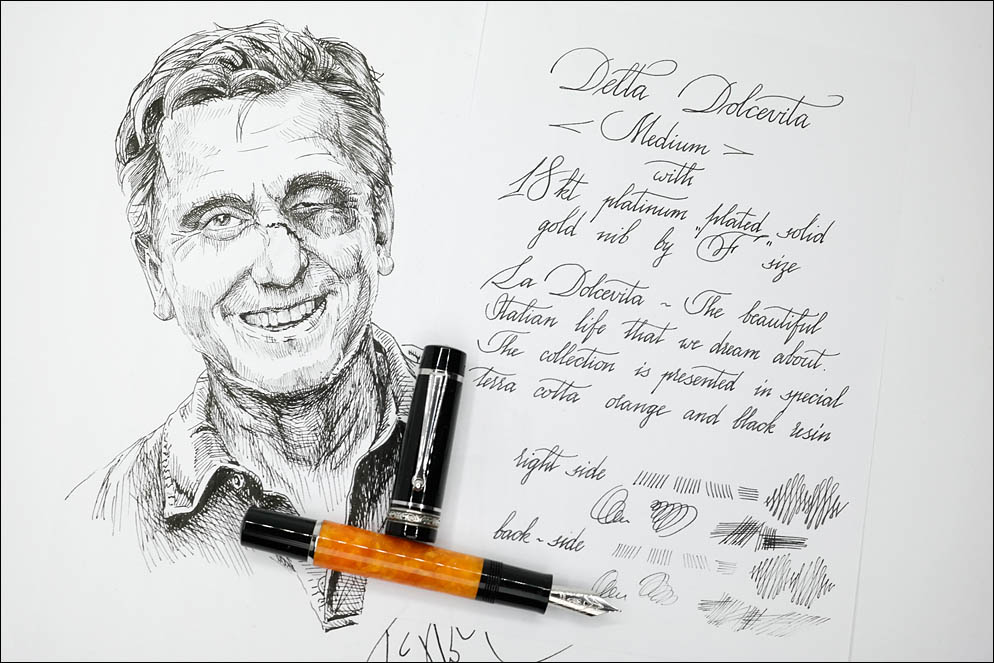 Delta Dolcevita
< Medium >
with
18kt platinum plated solid
gold nib by "F" size
La Dolcevita ~ The beautiful
Italian life that we dream about.
The collection is presented in special
terra cotta orange and black resin
right side
back ~ side